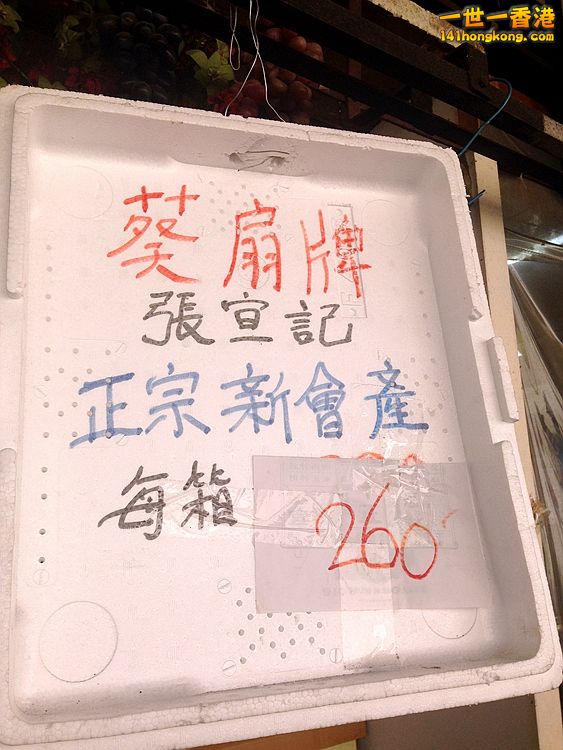 一世一香港
141hongkong.com
葵扇牌
張宣記
正宗新會產
每箱
260